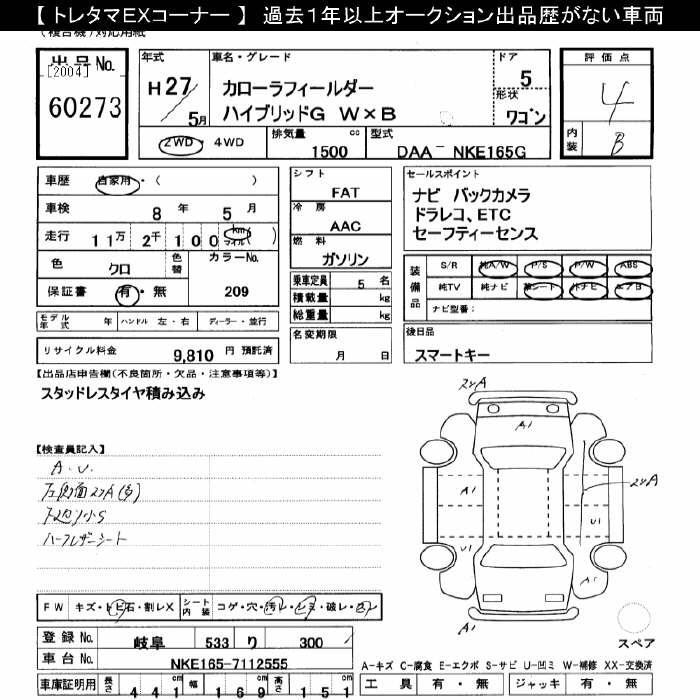 【トレタマEXコーナー】 過去1年以上オークション出品歴がない車両
(複合機)対応用紙
出品No. [2004] 60273
年式 H27/5月
車名・グレード
カローラフィールダー
ハイブリッドG W×B
ドア 5
形状 ワゴン
評価点 4
内装 B
2WD・4WD
排気量 1500 cc
型式 DAA－NKE165G
車歴 自家用・( )
車検 8年 5月
走行 11万2千100 km マイル( )
色 クロ 色替 カラーNo. 209
保証書 有・無
モデル年式 年 ハンドル 左・右 ディーラー・並行
リサイクル料金 9,810 円 預託済
シフト FAT
冷房 AAC
燃料 ガソリン
乗車定員 5 名
積載量 kg
総重量 kg
名変期限 月 日
セールスポイント
ナビ バックカメラ
ドラレコ、ETC
セーフティーセンス
装備品 S/R 純A/W P/S P/W ABS
純TV 純ナビ 革シート 外ナビ エアB
ナビ型番：
後日品
スマートキー
【出品店申告欄(不良箇所・欠品・注意事項等)】
スタッドレスタイヤ積み込み
【検査員記入】
A.U.
左側面スリA(多)
下廻り小S
ハーフレザーシート
2ヶA
A1
A1
2ヶA
U1
U1
A1
A1
スペア
FW キズ・トビ石・割レX シート内装 コゲ・穴・汚レ・シミ・破レ・
登録No. 岐阜 533 り 300
車台No. NKE165-7112555
車庫証明用 長さ 441cm 幅 169cm 高さ 151cm
A－キズ C－腐食 E－エクボ S－サビ U－凹ミ W－補修 XX－交換済
工具 有・無 ジャッキ 有・無